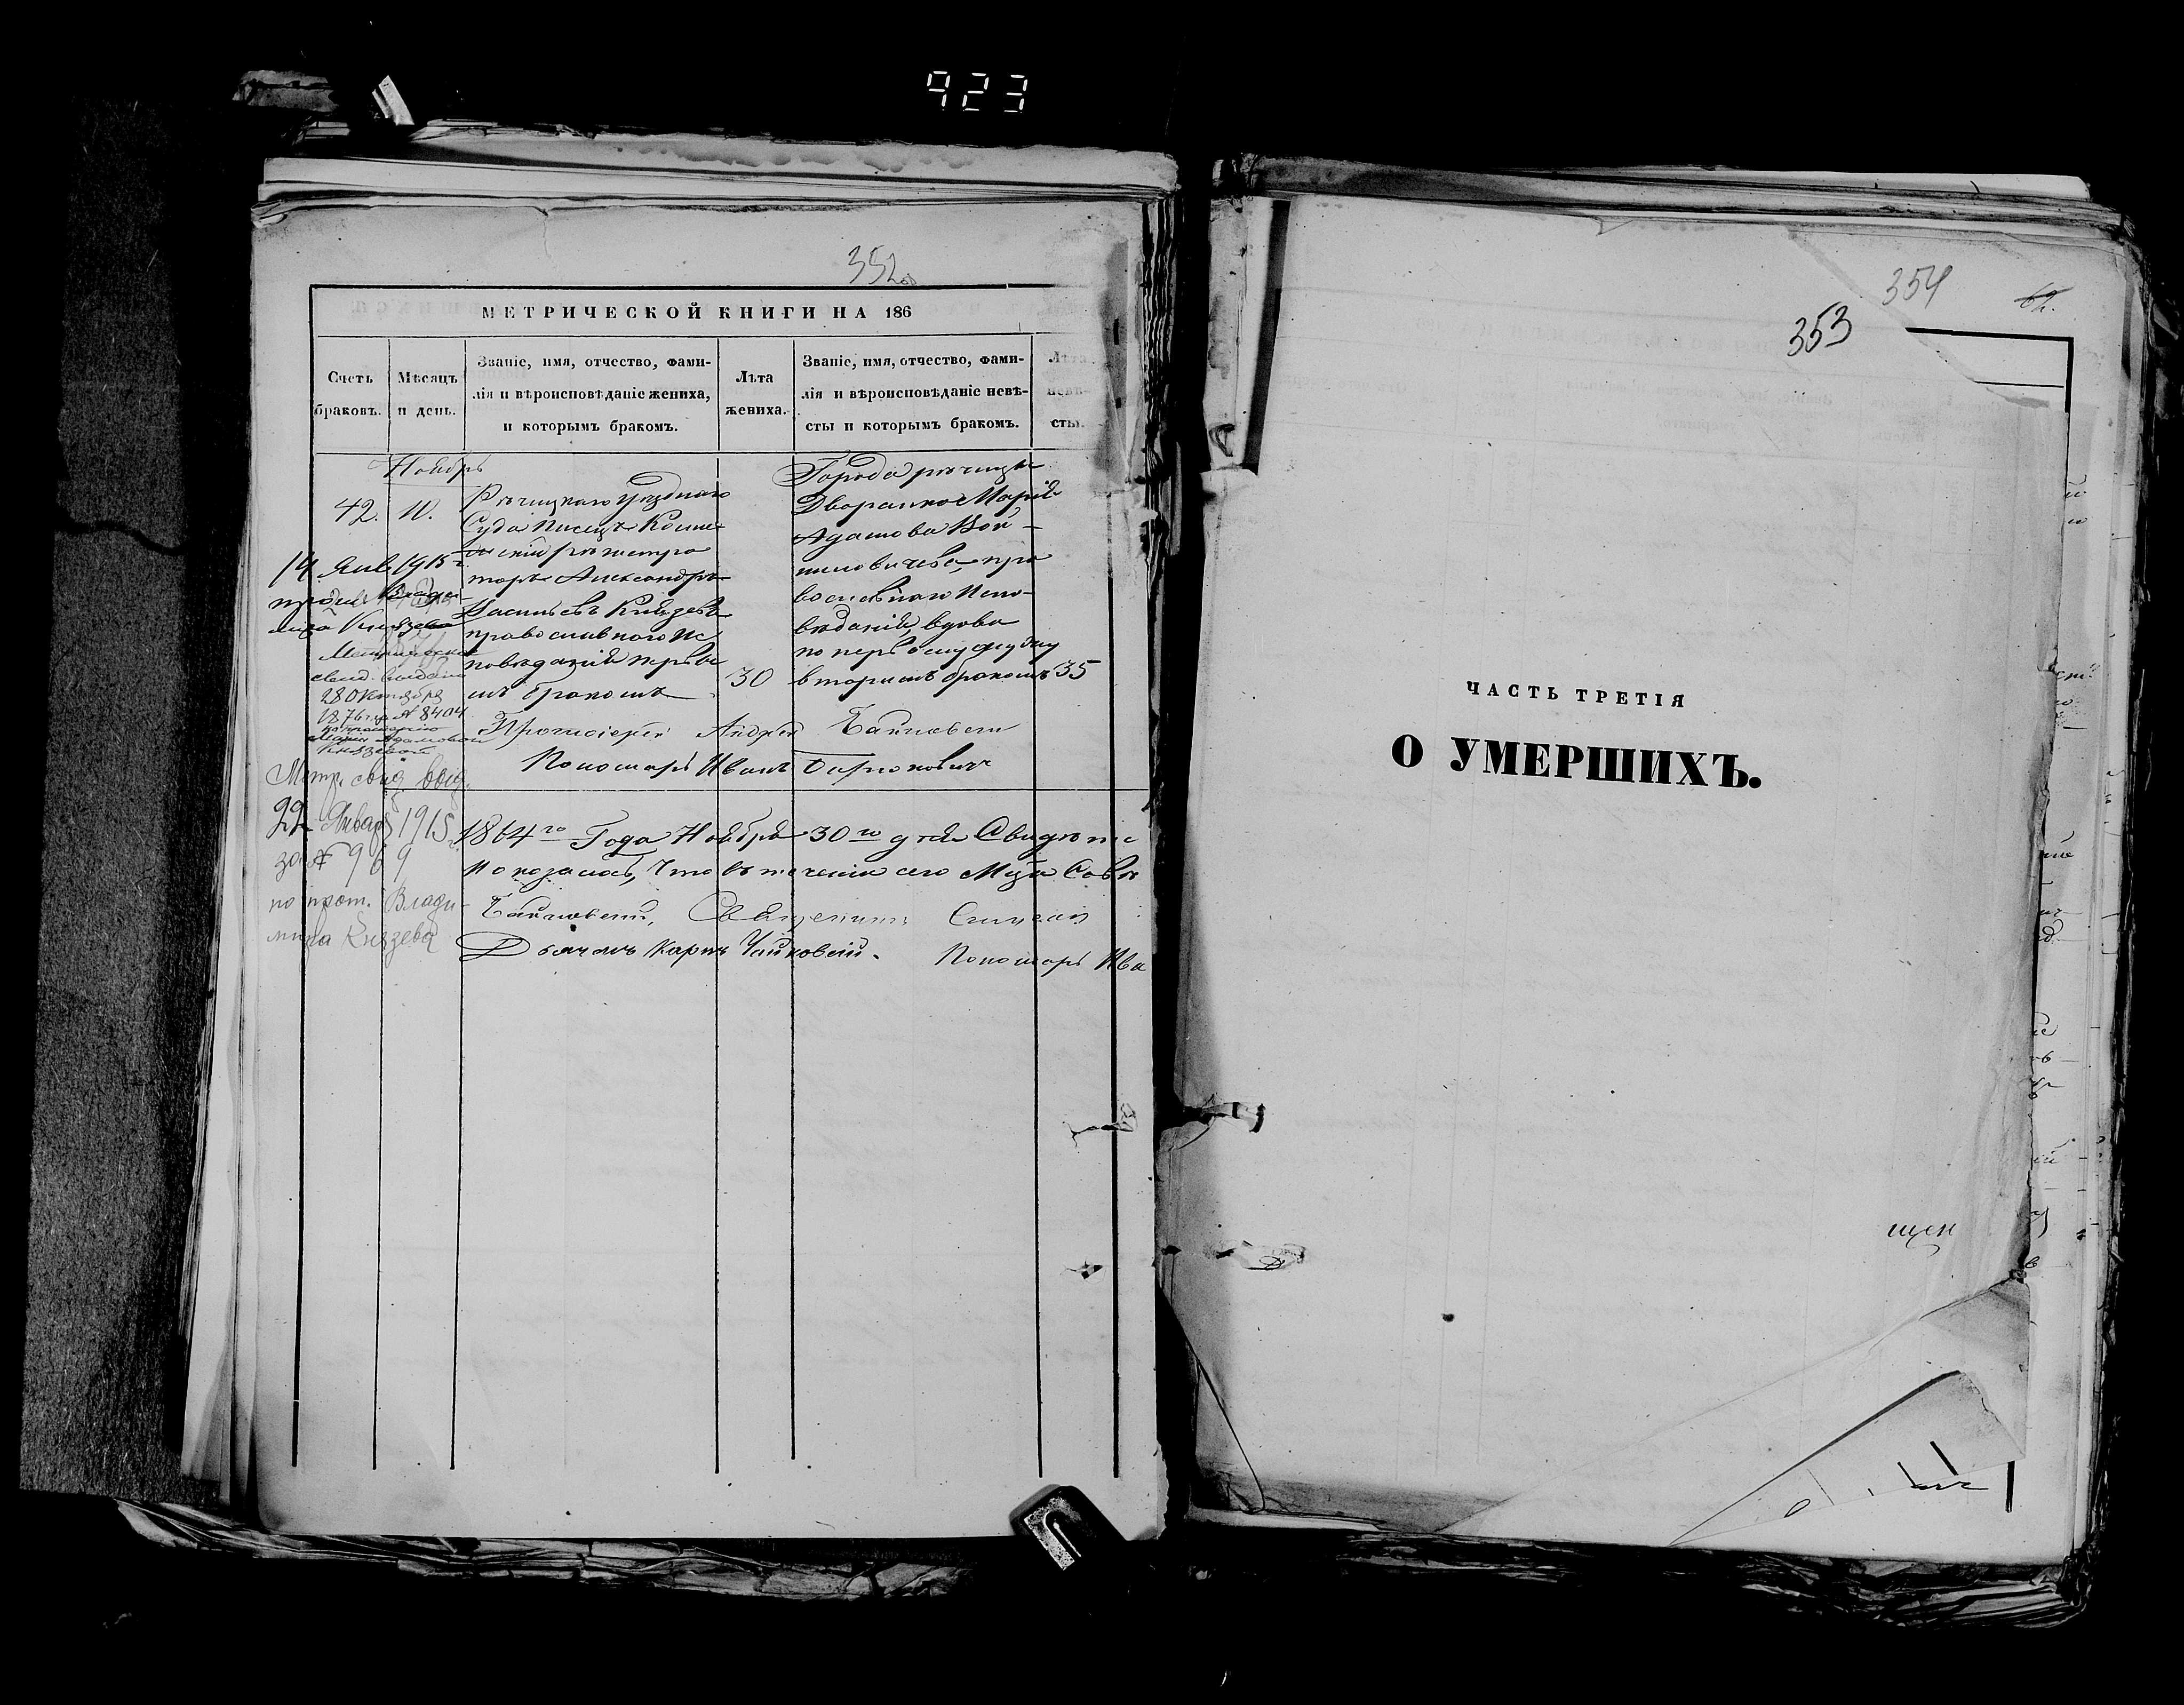 923
352об
МЕТРИЧЕСКОЙ КНИГИ НА 186
Счетъ браковъ.
Мѣсяцъ и день.
Званіе, имя, отчество, фами-
лія и вѣроисповѣданіе жениха,
и которымъ бракомъ.
Лѣта жениха.
Званіе, имя, отчество, фами-
лія и вѣроисповѣданіе невѣ-
сты и которымъ бракомъ.
Лѣта
невѣ-
сты.
Ноябрь
42.
10.
Рѣчицкаго уѣзднаго
Суда писецъ Колле
скій регистра
торъ Александръ
Васильевъ Князевъ
православнаго ис
повѣданія первы
мъ бракомъ
30
Города Рѣчицы
Дворянка Марія
Адамова Вой-
ниловичева, пра
вославнаго испо-
вѣданія, вдова
по первому мужу
вторымъ бракомъ
35
Протоіерей Андрей
Пономарь Иванъ
14 Янв 1915 г.
Влади-
мира Князева
Метрическое
свид. выдано
28 Октября
1876 г. № 8404
Маріи Адамовой
Князевой
Метр. свид. выд.
22 Января 1915 г.
за № 969
по прот. Влади-
мира Князева
1864го Года Ноября 30го дня Свидѣте
показалось, что въ теченіи сего Мца Совѣ
Священникъ
Дьячекъ Карпъ Чайковскій. Пономарь Ива
354
62.
353
ЧАСТЬ ТРЕТІЯ
О УМЕРШИХЪ.
щен